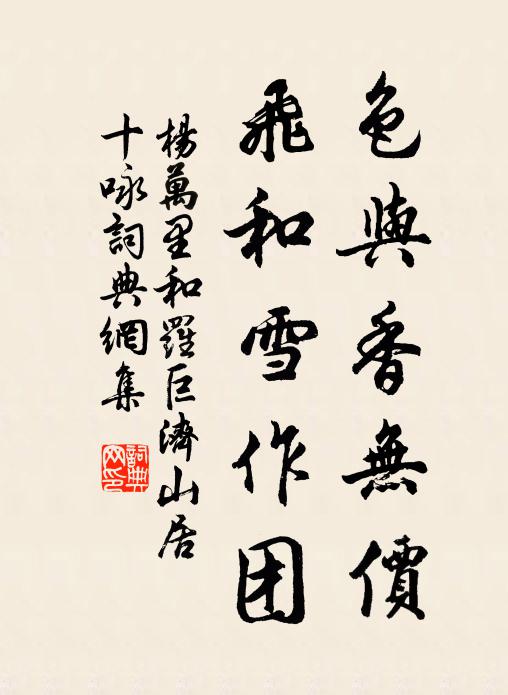 色與香無價
飛和雪作团
楊萬里和羅巨濟山居
十咏詞典網集
詞典
网印